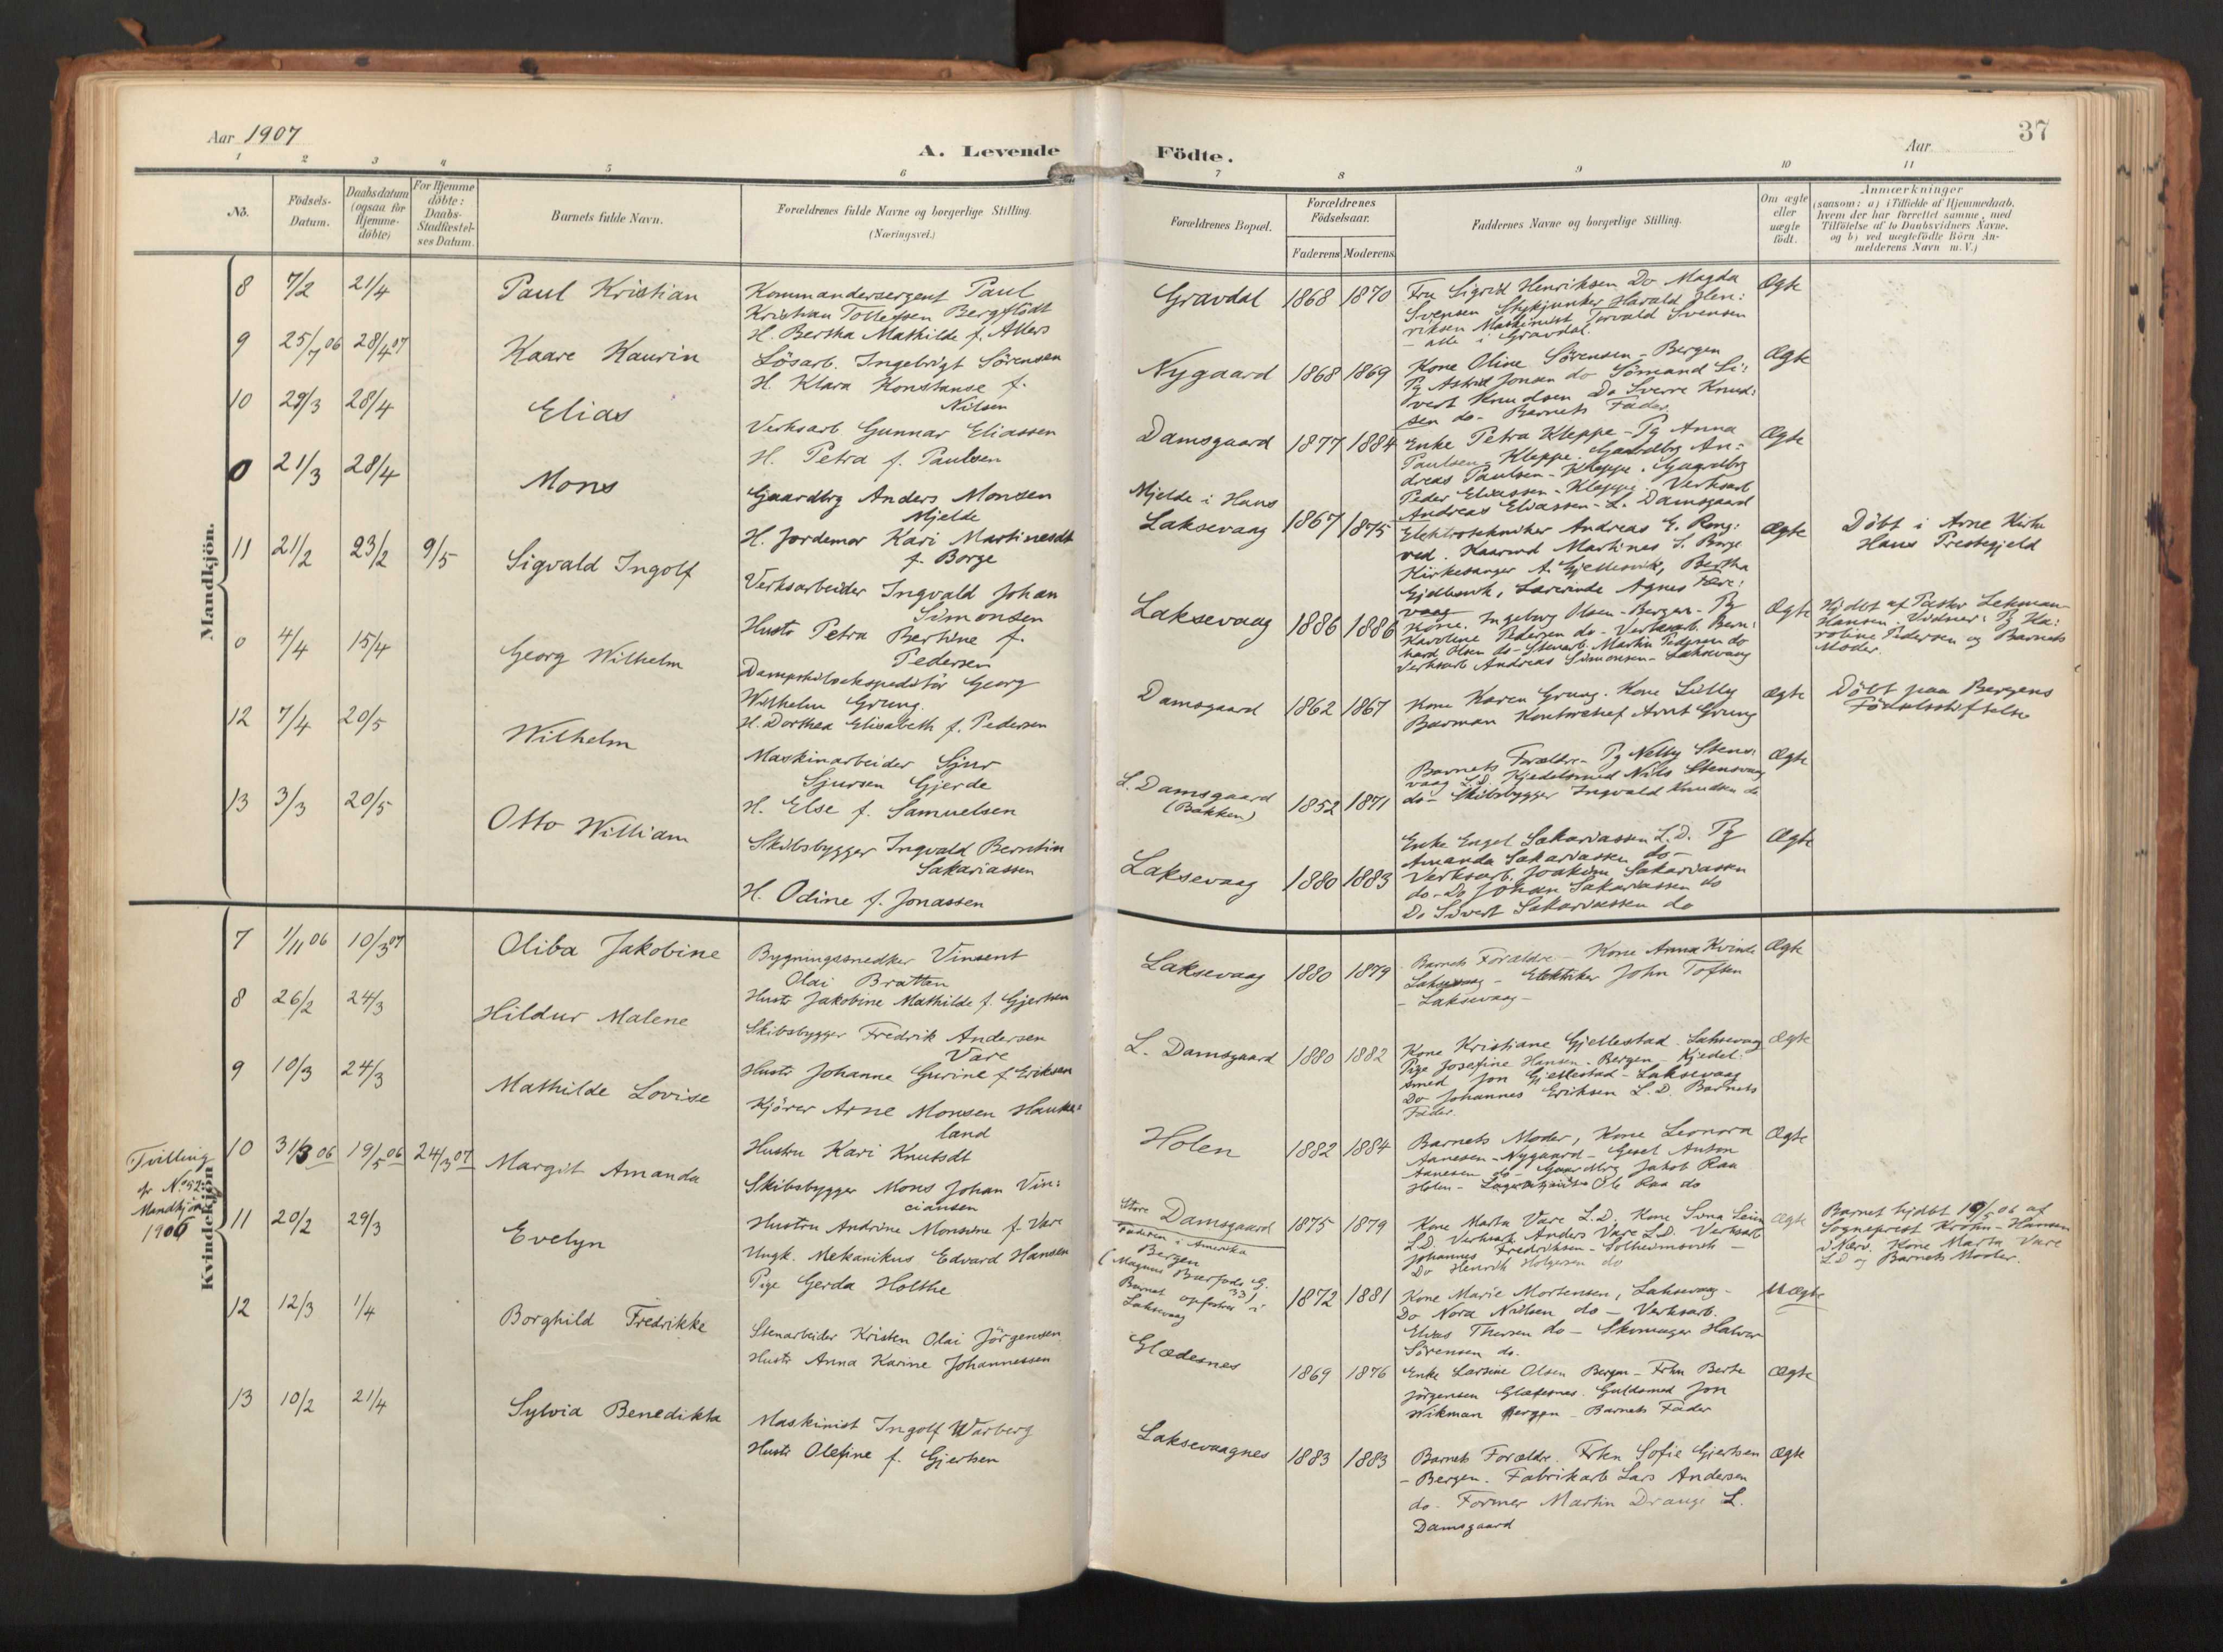 Aar 1907
A. Levende Födte.
Aar
37
1 2 3 4 5 6 7 8 9 10 11
No.
Födsels-
Datum.
Daabsdatum
(ogsaa for
Hjemme-
döbte)
For Hjemme
döbte:
Daabs-
Stadfæstel-
ses Datum.
Barnets fulde Navn.
Forældrenes fulde Navne og borgerlige Stilling.
(Næringsvei.)
Forældrenes Bopæl.
Forældrenes
Födselsaar.
Faderens Moderens.
Faddernes Navne og borgerlige Stilling.
Om ægte
eller
uægte
födt.
Anmærkninger
(saasom: a) i Tilfælde af Hjemmedaab,
hvem der har forrettet samme, med
Tilföielse af to Daabsvidners Navne,
og b) ved uægtefödte Börn An-
melderens Navn m. V.)
Mandkjön.
8 7/2 21/4 Paul Kristian
Kommandersergent Paul
Kristian Tollefsen Bergflödt
H. Bertha Mathilde f. Ahlers
Gravdal 1868 1870
Fru Sigrid Henriksen Do Magda
Svensen Stykjunker Harald Hen:
riksen Maskinist Torvald Svensen
- alle i Gravdal.
Ægte
9 25/7 06 28/4 07 Kaare Kaurin
Lösarb. Ingebrigt Sörensen
H. Klara Konstanse f.
Nilsen
Nygaard 1868 1869
Kone Oline Sörensen - Bergen
Pg Astrid Jonsen do Sömand Si:
vert Knudsen Do Sverre Knud:
sen do - Barnets Fader.
Ægte
10 29/3 28/4 Elias
Verksarb Gunnar Eliassen
H. Petra f. Paulsen
Damsgaard 1877 1884
Enke Petra Kleppe - Pg Anna
Paulsen - Kleppe. Gaardbrg An-
dreas Paulsen - Kleppe. Gaardbrg
Peder Eliassen - Kleppe. Verksarb
Andreas Eliassen - L. Damsgaard
Ægte
0 21/3 28/4 Mons
Gaardbrg Anders Monsen
Mjelde
H. Jordemor Kari Martinesdt
f. Borge
Mjelde i Haus
Laksevaag 1867 1875
Elektrotekniker Andreas E. Rong:
ved. Haavard Martines S. Borge
Kirkesanger A. Gjellesvik, Bertha
Gjellesvik, Lærerinde Agnes
vaag
Ægte
Döbt i Arne Kirke
Haus Prestegjeld
11 21/2 23/2 9/5 Sigvald Ingolf
Verksarbeider Ingvald Johan
Simonsen
Hustr Petra Bertine f.
Pedersen
Laksevaag 1886 1886
Kone. Ingeborg Olsen - Bergen - Pg
Karoline Pedersen do - Verksarb Bern:
hard Olsen do - Stenarb. Martin Pedersen do
Verksarb Andreas Simonsen - Laksevaag
Ægte
Hjdbt af Pastor Lehman-
Hansen. Vidner: Pg Ka:
roline Pedersen og Barnets
Moder.
0 4/4 15/4 Georg Wilhelm
Dampskibsekspeditör Georg
Wilhelm Grung.
H. Dorthea Elisabeth f. Pedersen
Damsgaard 1862 1867
Kone Karen Grung. Kone Lully
Barman Kontorchef Arnt Grung
Ægte
Döbt paa Bergens
Födselsstiftelse
12 7/4 20/5 Wilhelm
Maskinarbeider Sjur
Sjursen Gjerde
H. Else f. Samuelsen
L. Damsgaard
(Bakken) 1852 1871
Barnets Forældre - Pg Nelly Stens:
vaag L.D. Kjedelsmed Nils Stensvaag
do - Skibsbygger Ingvald Knudsen do
Ægte
13 3/3 20/5 Otto William
Skibsbygger Ingvald Berntin
Sakariassen
H. Odine f. Jonassen
Laksevaag 1880 1883
Enke Engel Sakariassen L.D. Pg
Amanda Sakariassen do -
Verksarb. Joakim Sakariassen
do - Do Johan Sakariassen do
Do Sivert Sakariassen do
Ægte
Kvindekjön
7 1/11 06 10/3 07 Oliba Jakobine
Bygningssnedker Vinsent
Olai Bratten
Hustr Jakobine Mathilde f. Gjertsen
Laksevaag 1880 1879
Barnets Forældre - Kone Anna Kvinde
Laksevaag - Elektriker John Toften
- Laksevaag -
Ægte
8 26/2 24/3 Hildur Malene
Skibsbygger Fredrik Andersen
Vare
Hustr Johanne Gurine f. Eriksen
L. Damsgaard 1880 1882
Kone Kristiane Gjellestad. Laksevaag
Pige Josefine Hansen - Bergen - Kjedel:
smed Jon Gjellestad - Laksevaag
Do Johannes Eriksen L.D. Barnets
Fader.
Ægte
9 10/3 24/3 Mathilde Lovise
Kjörer Arne Monsen Hauke:
land
Hustru Kari Knutsdt
Holen 1882 1884
Barnets Moder, Kone Leonora
Aanesen - Nygaard - Gesel Anton
Aanesen do - Gaardbrg Jakob Raa
Holen - Ole Raa do
Ægte
Tvilling
af No 92
Mandkjön
1906
10 31/3 06 19/5 06 24/3 07 Margit Amanda
Skibsbygger Mons Johan Vin:
ciansen
Hustru Andrine Monsine f. Vare
Store Damsgaard 1875 1879
Kone Marta Vare L.D. Kone
L.D. Verksarb. Anders Vare L.D. Verksarb
Johannes Fredriksen - Solheimsvik -
Do Henrik Holgersen do
Ægte
Barnet hjdbt 19/5 06 af
Sogneprest Krohn-Hansen
i Nærv. Kone Marta Vare
L.D og Barnets Moder.
11 20/2 29/3 Evelyn
Ungk. Mekanikus Edvard Hansen
Pige Gerda Holthe
Faderen i Amerika
Bergen
(Magnus Barfods G.
33)
Barnet opfostres i
Laksevaag
1872 1881
Kone Marie Mortensen, Laksevaag -
Do Nora Nilsen do - Verksarb.
Elias Thorsen do - Skomager Halvor
Sörensen do.
Uægte
12 12/3 1/4 Borghild Fredrikke
Stenarbeider Kristen Olai Jörgensen
Hustr Anna Karine Johannessen
Glædesnes 1869 1876
Enke Larsine Olsen Bergen - Frkn Berte
Jörgensen Glæsesnes. Guldsmed Jon
Wikman Bergen - Barnets Fader
Ægte
13 10/2 21/4 Sylvia Benedikta
Maskinist Ingolf Warberg
Hustr Olefine f. Gjertsen
Laksevaagnes 1883 1883
Barnets Forældre. Frkn Sofie Gjertsen
- Bergen. Fabrikarb Lars Andersen
do - Former Martin Drange L.
Damsgaard
Ægte